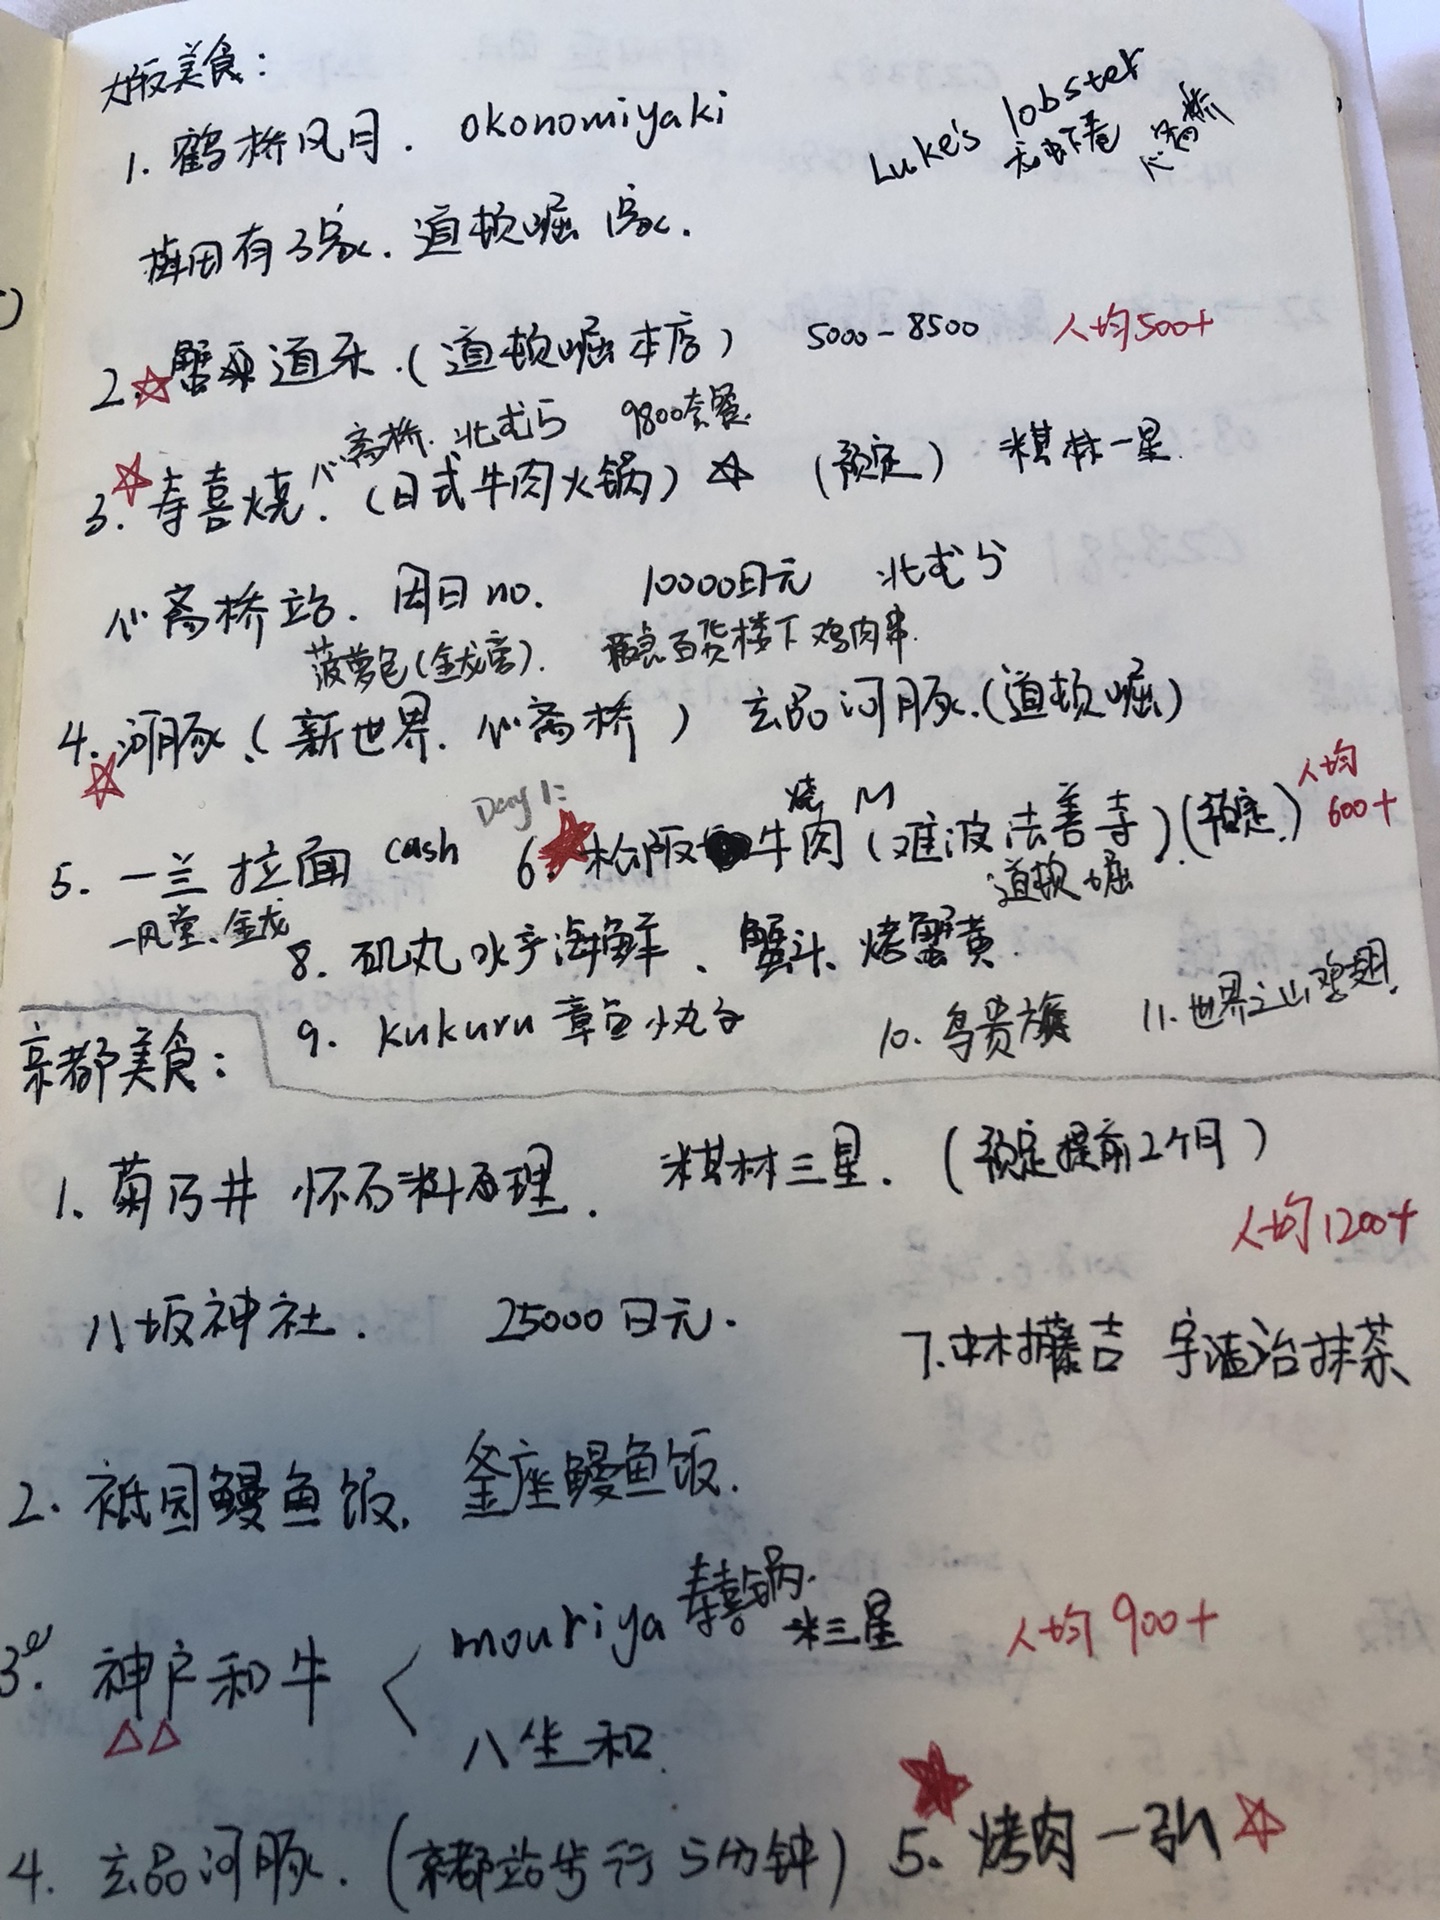 大阪美食：
1. 鹤桥风月. okonomiyaki
Luke's lobster
龙虾卷 心斋桥
梅田有3家. 道顿崛 1家.
2. 蟹道乐.(道顿崛本店) 5000-8500 人均500+
心斋桥. 北むら 9800套餐.
3. 寿喜烧. (日式牛肉火锅) (预定) 米其林一星.
心斋桥站. 周日no. 10000日元 北むら
菠萝包(金龙旁). 百货楼下鸡肉串.
4. 河豚.(新世界. 心斋桥) 玄品河豚.(道顿崛)
5. 一兰拉面 cash
Day 1:
6. 松阪牛烧肉 M (难波法善寺).(预定.) 人均600+
道顿崛
一风堂、金龙
8. 矶丸水产海鲜、蟹斗、烤蟹黄.
9. kukuru 章鱼小丸子 10. 鸟贵族 11. 世界之山鸡翅.
京都美食：
1. 菊乃井 怀石料理. 米其林三星. (预定提前2个月)
人均1200+
八坂神社. 25000日元.
7. 中村藤吉 宇治抹茶
2. 祗园鳗鱼饭. 釜座鳗鱼饭.
3. 神户和牛 < mouriya 寿喜锅. 米三星 人均900+
八坐和.
4. 玄品河豚. (京都站步行5分钟) 5. 烤肉一弘